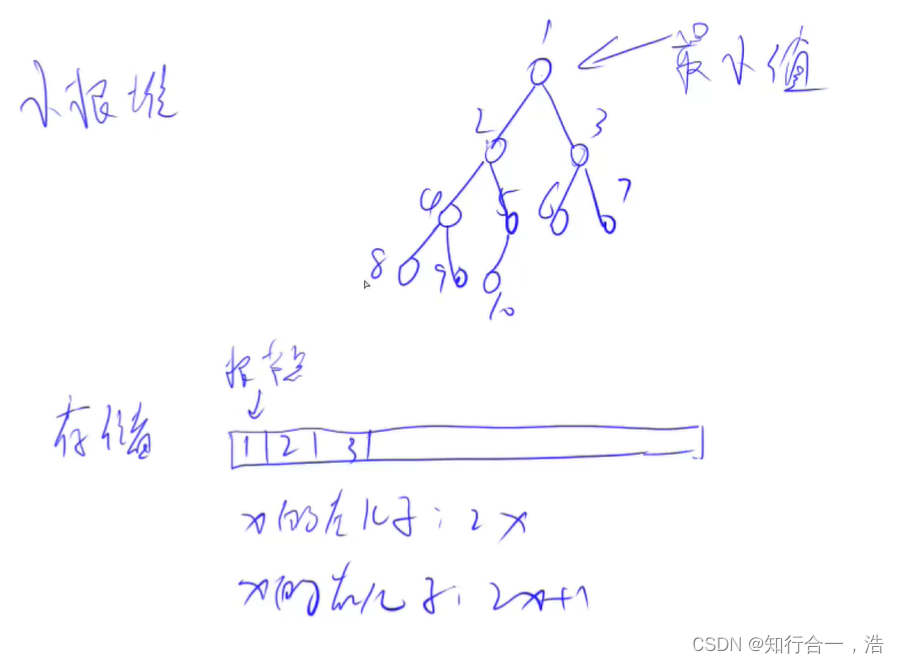 1
最小值
小根堆
2 3
4 5 6 7
8 9 10
根节点
存储
1 2 3
x的左儿子: 2x
x的右儿子: 2x+1
CSDN @知行合一，浩